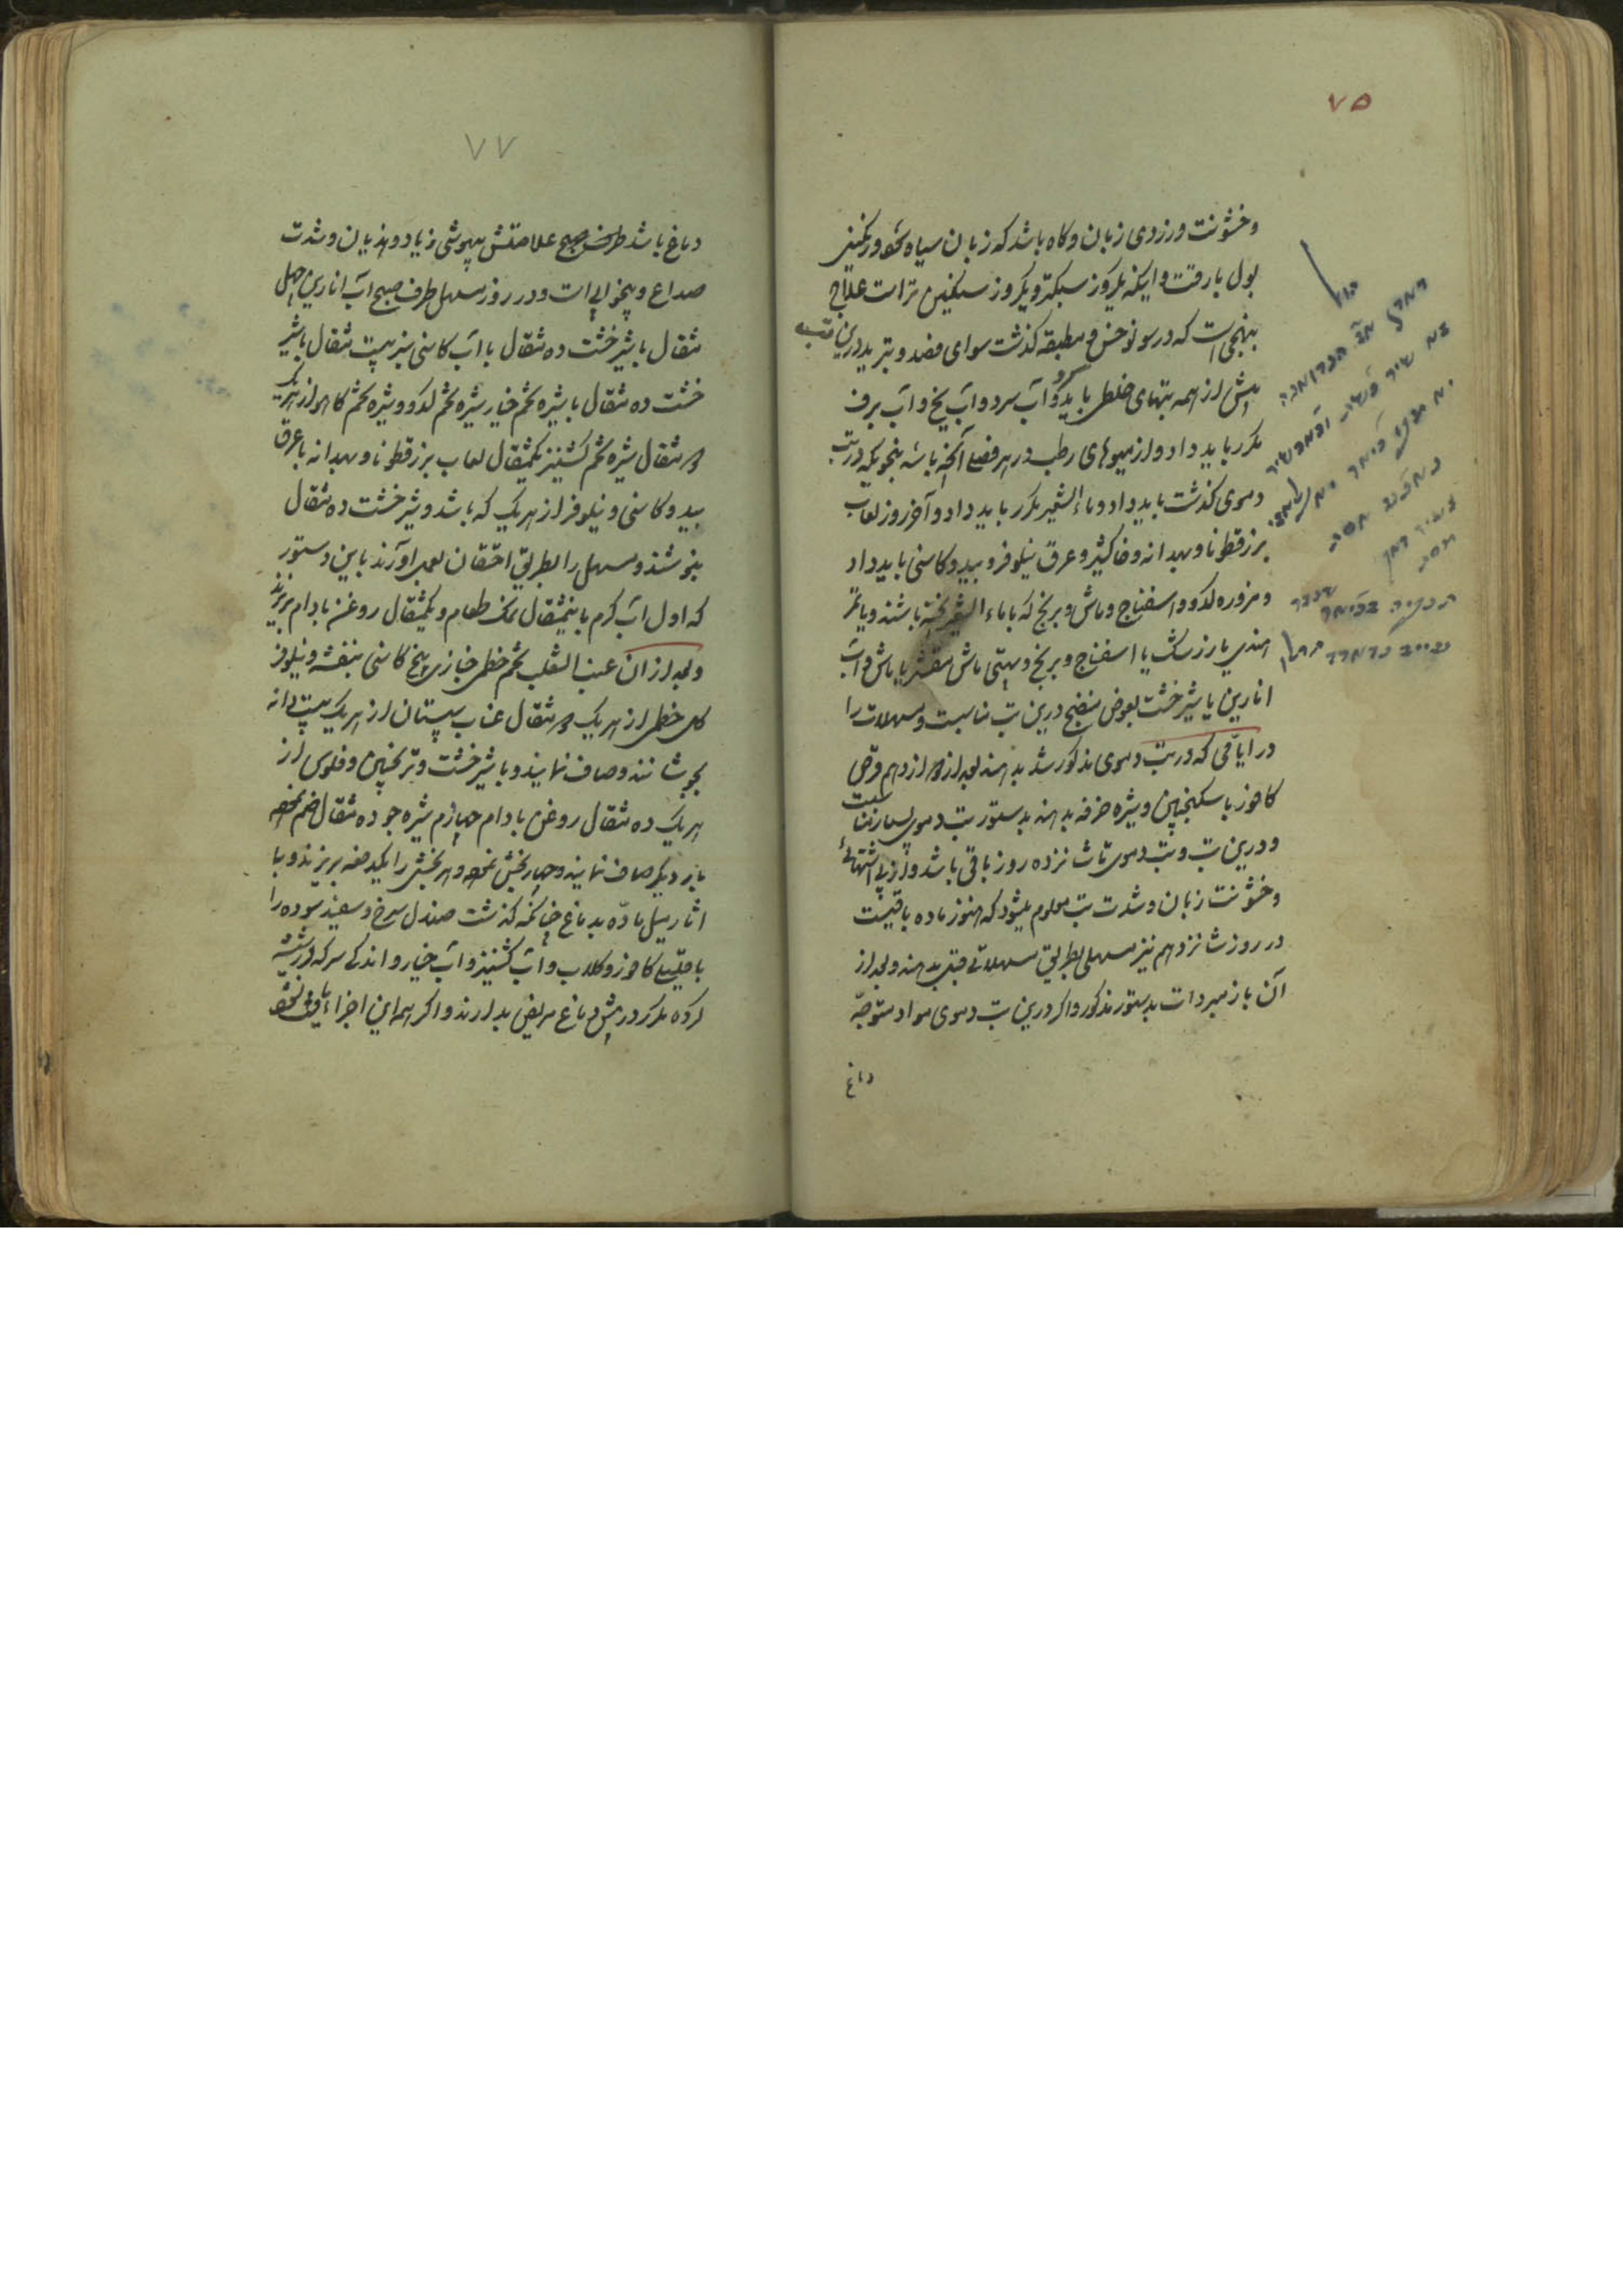 ۷۵
وخشونت و زردی زبان و کاه باشد که زبان سیاه شود و رنکینی
بول با رقت و اینکه یکروز سبکتر و یکروز سنکین تر است علاج
بنهجی است که در سونوخس و مطبقه کذشت سوای فصد و تبرید درین تب
پیش از همه تبهای خلطی باید کرد و آب سرد و آب یخ و آب برف
مکرر باید داد و از میوهای رطب در هر فصلی آنچه باشد بنحویکه در تب
دموی کذشت باید داد و ماء الشعیر مکرر باید داد و آخر روز لعاب
بزرقطونا و بهدانه و خاکشیر و عرق نیلوفر و بید و کاسنی باید داد
و مزوره کدو و اسفناج و ماش و برنج که با ماء الشعیر پخته باشند و یا تمر
هندی یا زرشک یا اسفناج و برنج و بهتی ماش مقشر یا ماش و آب
انارین یا شیرخشت بعوض منضج درین تب مناسبست و مسهلات را
در ایامی که در تب دموی مذکور شد بدهند بعد از دوازدهم قرص
کافور با سکنجبین و شیره خرفه بدهند بدستور تب دموی بسیار مناسبست
و درین تب و تب دموی تا شانزده روز باقی باشد و از بی اشتهائی
و خشونت زبان و شدت تب معلوم میشود که هنوز ماده باقیست
در روز شانزدهم نیز مسهلی بطریق مسهلاتی قبل بدهند و بعد از
آن باز مبردات بدستور مذکور و اکر درین تب دموی مواد متوجه
دماغ
۷۷
دماغ باشد طرف صبح علامتش بیهوشی زیاد و هذیان و شدت
صداع و بیخوابی است و در روز مسهل طرف صبح آب انارین چهل
مثقال با شیرخشت ده مثقال با آب کاسنی سبز بیست مثقال با شیر
خشت ده مثقال با شیره تخم خیار شیره تخم کدو و شیره تخم کاهو از هر یک
دو مثقال شیره تخم کشنیز یکمثقال لعاب بزرقطونا و بهدانه با عرق
بید و کاسنی و نیلوفر از هر یک که باشد و شیرخشت ده مثقال
بنوشند و مسهل را بطریق احتقان بعمل اورند باین دستور
که اول آب کرم با نیمثقال نمک طعام و یکمثقال روغن بادام بریزند
و بعد از ان عنب الثعلب تخم خطمی خبازی بیخ کاسنی بنفشه و نیلوفر
کل خطمی از هر یک دو مثقال عناب سپستان از هر یک بیست دانه
بجوشانند و صاف نمایند و با شیرخشت و ترنجبین و فلوس از
هر یک ده مثقال روغن بادام چهار درم شیره جو ده مثقال ضم نموده
بار دیکر صاف نمایند و چهار بخش نموده و هر بخشی را یکدفعه بریزند و با
اثار میل ماده بدماغ چنانکه کذشت صندل سرخ و سفید سوده را
با قلیلی کافور و کلاب و آب کشنیز و آب خیار و اندکی سرکه در شیشه
کرده مکرر در پیش دماغ مریض بدارند و اکر همه این اجزاء یافت نشود